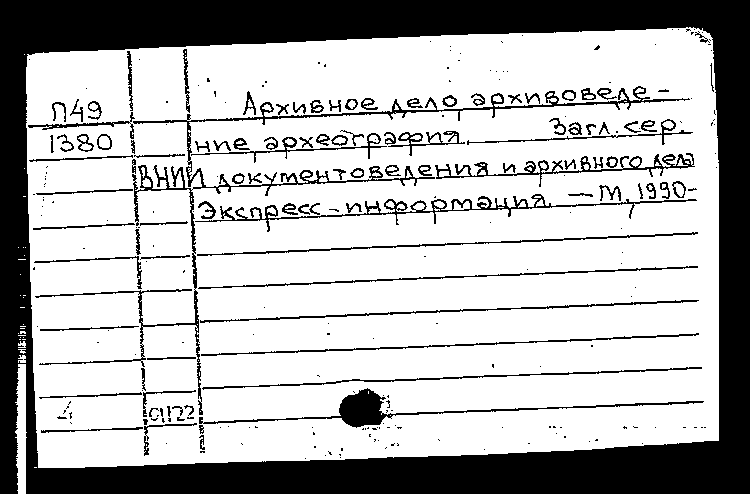 П49
1380
Архивное дело, архивоведе-
ние, археография. Загл. сер.
ВНИИ документоведения и архивного дела
Экспресс-информация. — М., 1990-
4
01122